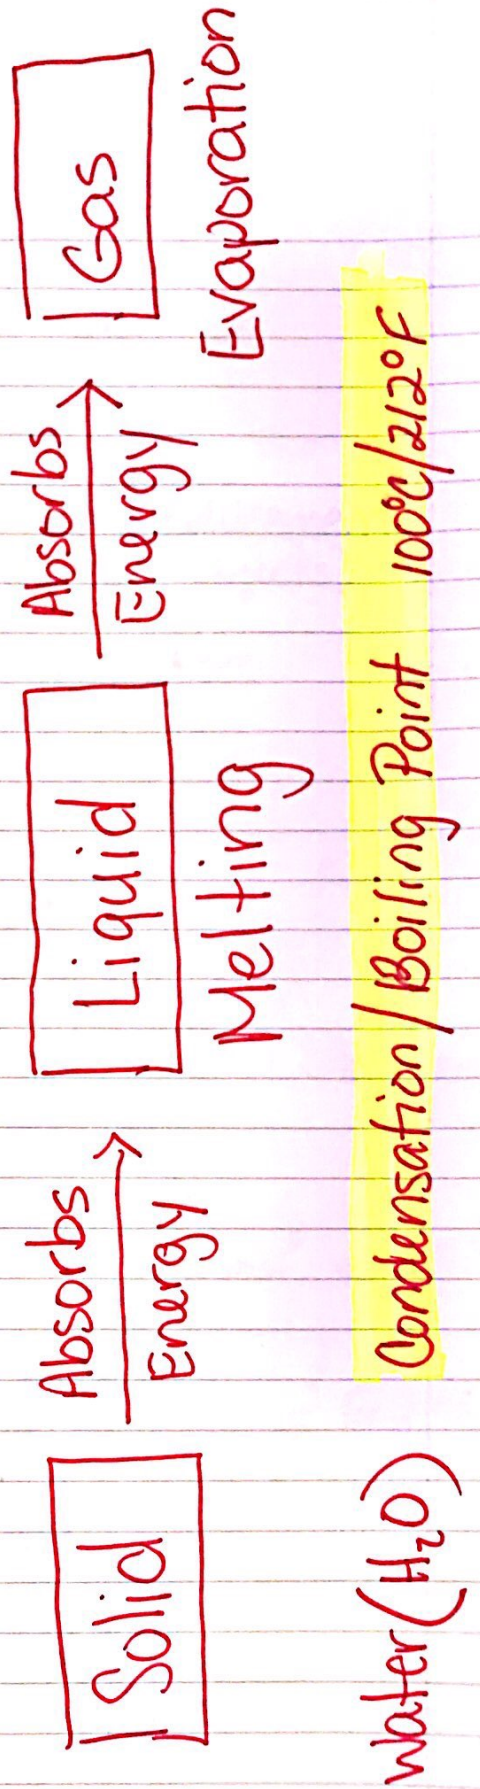 Solid
Absorbs
Energy
Liquid
Melting
Absorbs
Energy
Gas
Evaporation
Water (H₂O)
Condensation / Boiling Point 100°C/212°F